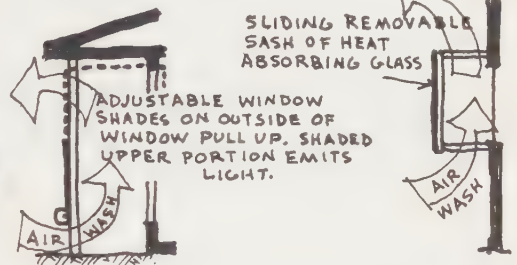 SLIDING REMOVABLE
SASH OF HEAT
ABSORBING GLASS
ADJUSTABLE WINDOW
SHADES ON OUTSIDE OF
WINDOW PULL UP. SHADED
UPPER PORTION EMITS
LIGHT.
AIR WASH
AIR
WASH